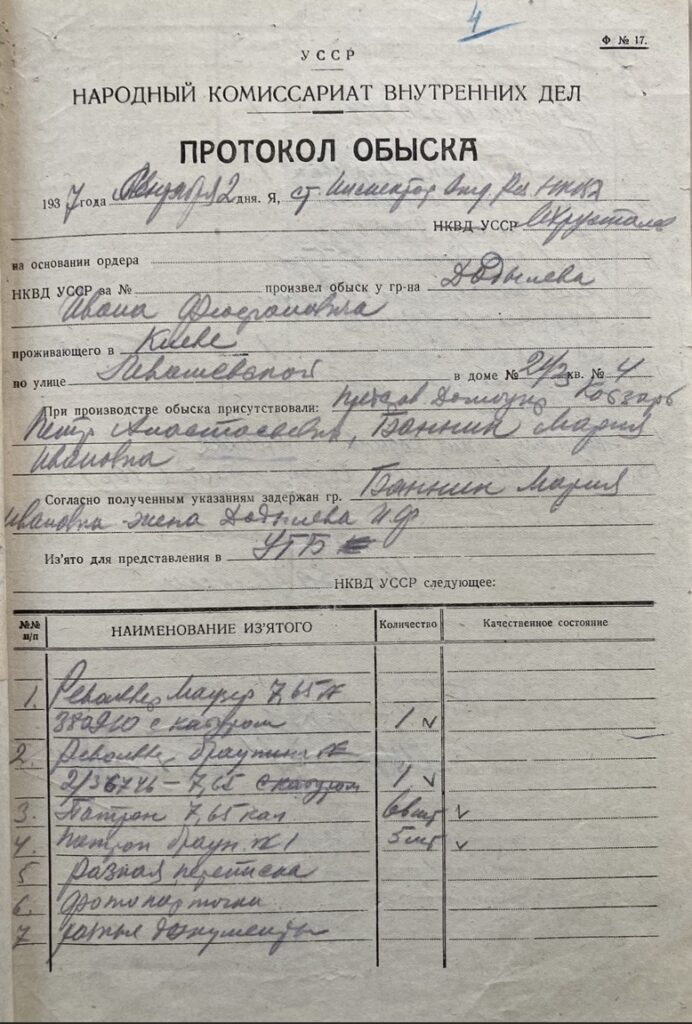 4
Ф № 17.
УССР
НАРОДНЫЙ КОМИССАРИАТ ВНУТРЕННИХ ДЕЛ
ПРОТОКОЛ ОБЫСКА
1937 года Сентября 2 дня. Я, ст Инспектор
НКВД УССР Хрусталев
на основании ордера
НКВД УССР за № произвел обыск у гр-на Додылева
Ивана
проживающего в Киеве
по улице Левашевской в доме № 24/3 кв. № 4
При производстве обыска присутствовали: Кобзарь
Петр Анастасевич, Баннин Мария
Ивановна
Согласно полученным указаниям задержан гр. Баннин Мария
Ивановна жена Додылева И Ф
Из'ято для представления в УГБ
НКВД УССР следующее:
№№ п/п НАИМЕНОВАНИЕ ИЗ'ЯТОГО Количество Качественное состояние
1. Револьвер Маузер 7,65 №
с кабуром 1
2. Револьвер браунинг №
7,65 с кабуром 1
3. Патрон 7,65 кал
4. Патрон браун. №1 5 шт
5 разная переписка
6. фотокарточки
7 разные документы